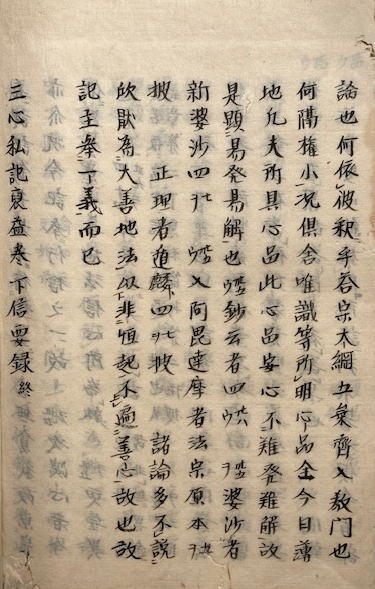 論也何依彼釈乎若宗太綱五彙齊入教门也
何隔権小况倶舎唯識等所明心品全今日薄
地凡夫所具心品此心品安心不難発難解故
是顕易発易解也鈔云者四 婆沙者
新婆沙四 入阿毘達磨者法宗原本
披 正理者遁麟四 披 諸論多不説
欣厭為大善地法以非恒起不遍善心故也故
記至挙一義而已
三心私記裒益巻下信要録終